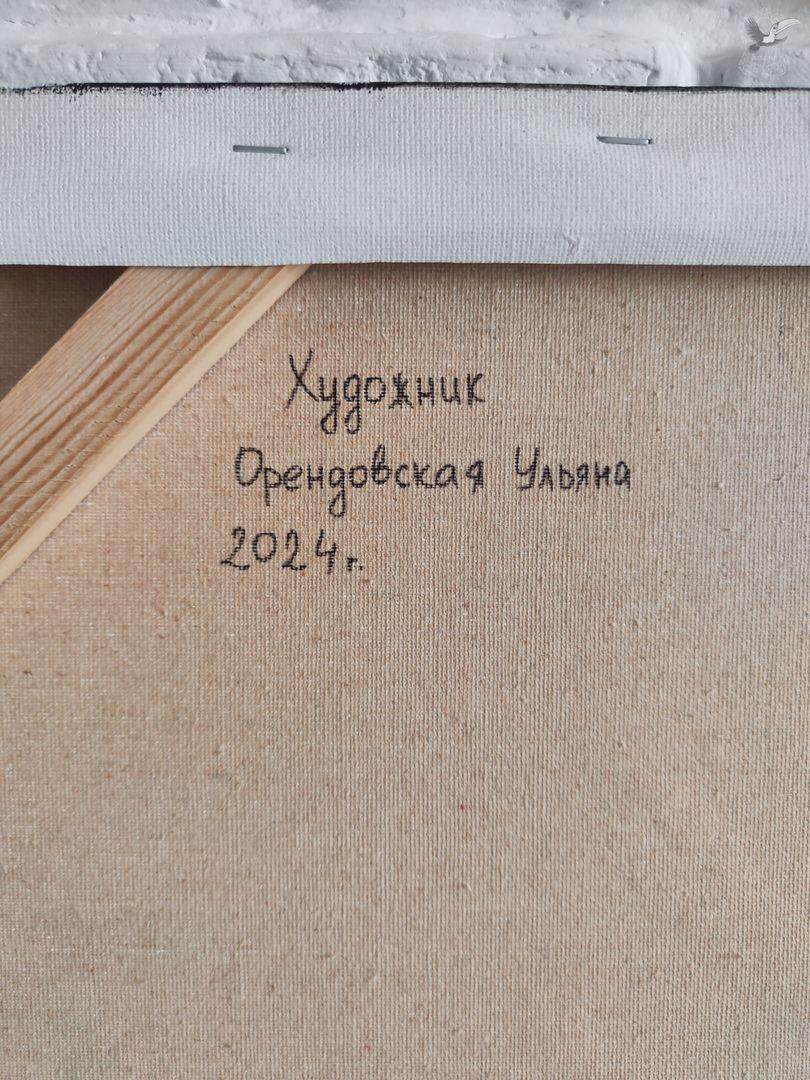 Художник
Орендовская Ульяна
2024 г.